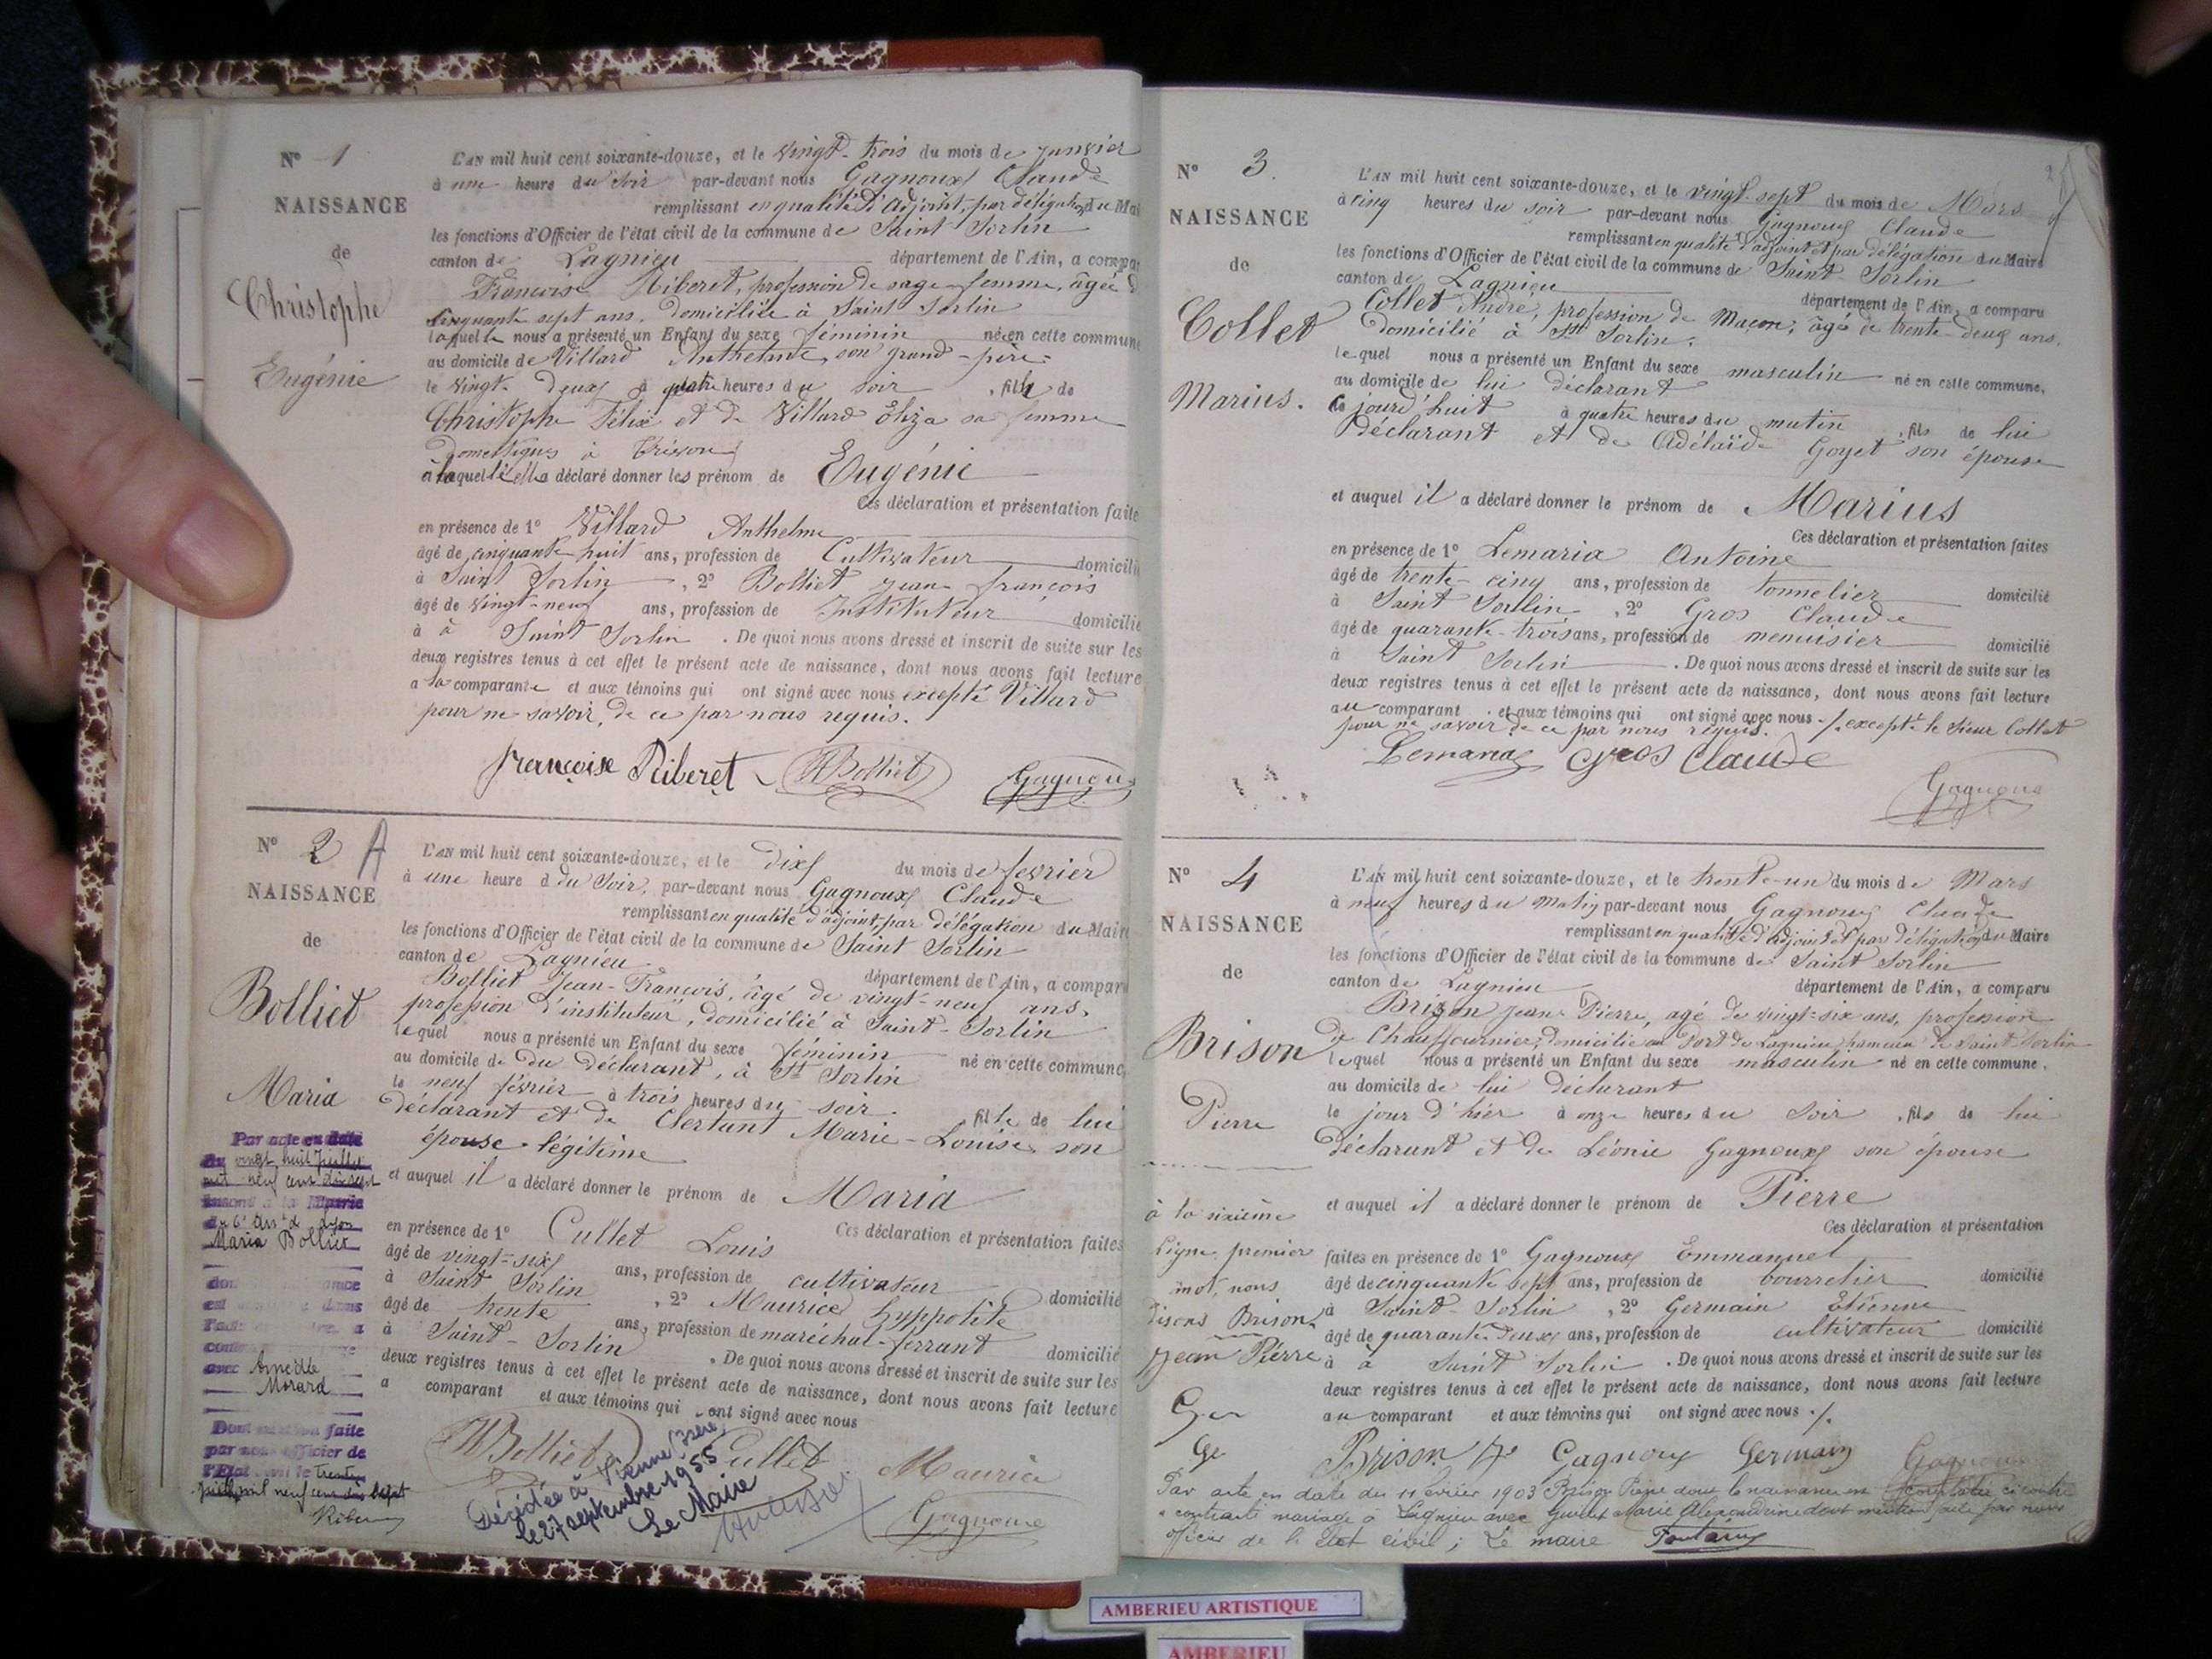 N° 1
NAISSANCE
de
Christophe
Eugénie
L'AN mil huit cent soixante-douze, et le vingt-trois du mois de janvier
à une heure du soir par-devant nous Gagnoux Claude
remplissant en qualité d'adjoint, par délégation du Mai
les fonctions d'Officier de l'état civil de la commune de Saint Sorlin
canton de Lagnieu département de l'Ain, a compar
Françoise Riberet, profession de sage-femme, âgée d
cinquante sept ans, domiciliée à Saint Sorlin
laquelle nous a présenté un Enfant du sexe féminin né en cette commune
au domicile de Villard Anthelme, son grand-père
le vingt-deux à quatre heures du soir, fille de
Christophe Félix et de Villard Eliza sa femme
domestiques à
à laquelle elle a déclaré donner les prénom de Eugénie
Ces déclaration et présentation faite
en présence de 1° Villard Anthelme
âgé de cinquante huit ans, profession de Cultivateur domicilié
à Saint Sorlin, 2° Bolliet Jean François
âgé de vingt-neuf ans, profession de Instituteur domicilié
à à Saint Sorlin. De quoi nous avons dressé et inscrit de suite sur les
deux registres tenus à cet effet le présent acte de naissance, dont nous avons fait lecture
a la comparante et aux témoins qui ont signé avec nous excepté Villard
pour ne savoir, de ce par nous requis.
françoise Riberet Bolliet Gagnoux
N° 2 A
NAISSANCE
de
Bolliet
Maria
L'AN mil huit cent soixante-douze, et le dix du mois de fevrier
à une heure d du soir, par-devant nous Gagnoux Claude
remplissant en qualité d'adjoint, par délégation du Mair
les fonctions d'Officier de l'état civil de la commune de Saint Sorlin
canton de Lagnieu département de l'Ain, a compar
Bolliet Jean-François, âgé de vingt-neuf ans,
profession d'instituteur, domicilié à Saint-Sorlin
lequel nous a présenté un Enfant du sexe féminin né en cette commune,
au domicile de du déclarant, à St Sorlin
le neuf février à trois heures du soir, fille de lui
déclarant et de Clertant Marie-Louise son
épouse légitime
et auquel il a déclaré donner le prénom de Maria
Ces déclaration et présentation faites
en présence de 1° Cullet Louis
âgé de vingt-six ans, profession de cultivateur domicilié
à Saint Sorlin, 2° Maurice hyppolite
âgé de trente ans, profession de maréchal-ferrant domicilié
à Saint-Sorlin. De quoi nous avons dressé et inscrit de suite sur les
deux registres tenus à cet effet le présent acte de naissance, dont nous avons fait lecture
a comparant et aux témoins qui ont signé avec nous
Bolliet Cullet Maurice
Gagnoux
Par acte en date
du vingt huit Juillet
mil neuf cent dix sept
la Mairie
du 6e Arrt de Lyon
Maria Bolliet
avec Amédée
Morard
Dont mention faite
par nous officier de
l'Etat civil le trente
juillet mil neuf cent dix sept
Décédée à Vienne Isère,
le 27 septembre 1955
Le Maire
N° 3.
NAISSANCE
de
Collet
Marius.
L'AN mil huit cent soixante-douze, et le vingt-sept du mois de Mars
à cinq heures du soir par-devant nous Gagnoux Claude
remplissant en qualité d'adjoint et par délégation du Maire
les fonctions d'Officier de l'état civil de la commune de Saint-Sorlin
canton de Lagnieu département de l'Ain, a comparu
Collet André, profession de Maçon, âgé de trente-deux ans,
domicilié à St Sorlin,
lequel nous a présenté un Enfant du sexe masculin né en cette commune,
au domicile de lui déclarant
ce jourd'huit à quatre heures du matin, fils de lui
déclarant et de Adélaïde Goyet son épouse
et auquel il a déclaré donner le prénom de Marius
Ces déclaration et présentation faites
en présence de 1° Lemaria Antoine
âgé de trente-cinq ans, profession de tonnelier domicilié
à Saint Sorlin, 2° Gros Claude
âgé de quarante-trois ans, profession de menuisier domicilié
à Saint Sorlin. De quoi nous avons dressé et inscrit de suite sur les
deux registres tenus à cet effet le présent acte de naissance, dont nous avons fait lecture
au comparant et aux témoins qui ont signé avec nous ./. excepté le sieur Collet
pour ne savoir de ce par nous requis.
Lemaria Gros Claude
Gagnoux
N° 4
NAISSANCE
de
Brison
Pierre
à la sixième
ligne premier
mot, nous
disons Brison
Jean Pierre
L'AN mil huit cent soixante-douze, et le trente-un du mois de Mars
à neuf heures du matin par-devant nous Gagnoux Claude
remplissant en qualité d'adjoint et par délégation du Maire
les fonctions d'Officier de l'état civil de la commune de Saint Sorlin
canton de Lagnieu département de l'Ain, a comparu
Brison Jean-Pierre, agé de vingt-six ans, profession
de Chauffournier, domicilié au Port de Lagnieu hameau de Saint Sorlin
lequel nous a présenté un Enfant du sexe masculin né en cette commune,
au domicile de lui déclarant
le jour d'hier à onze heures du soir, fils de lui
déclarant et de Léonie Gagnoux son épouse
et auquel il a déclaré donner le prénom de Pierre
Ces déclaration et présentation
faites en présence de 1° Gagnoux Emmanuel
âgé de cinquante sept ans, profession de bourrelier domicilié
à Saint-Sorlin, 2° Germain Etienne
âgé de quarante-deux ans, profession de cultivateur domicilié
à à Saint Sorlin. De quoi nous avons dressé et inscrit de suite sur les
deux registres tenus à cet effet le présent acte de naissance, dont nous avons fait lecture
au comparant et aux témoins qui ont signé avec nous ./.
Brison Gagnoux Germain Gagnoux
Par acte en date du 11 février 1903 Brison Pierre dont la naissance est constatée ci contre
a contracté mariage à Lagnieu avec Guillet Marie Alexandrine dont mention faite par nous
officier de l'état civil; Le maire
AMBERIEU ARTISTIQUE
AMBERIEU